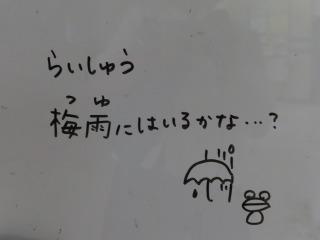 らいしゅう
つゆ
梅雨にはいるかな…?